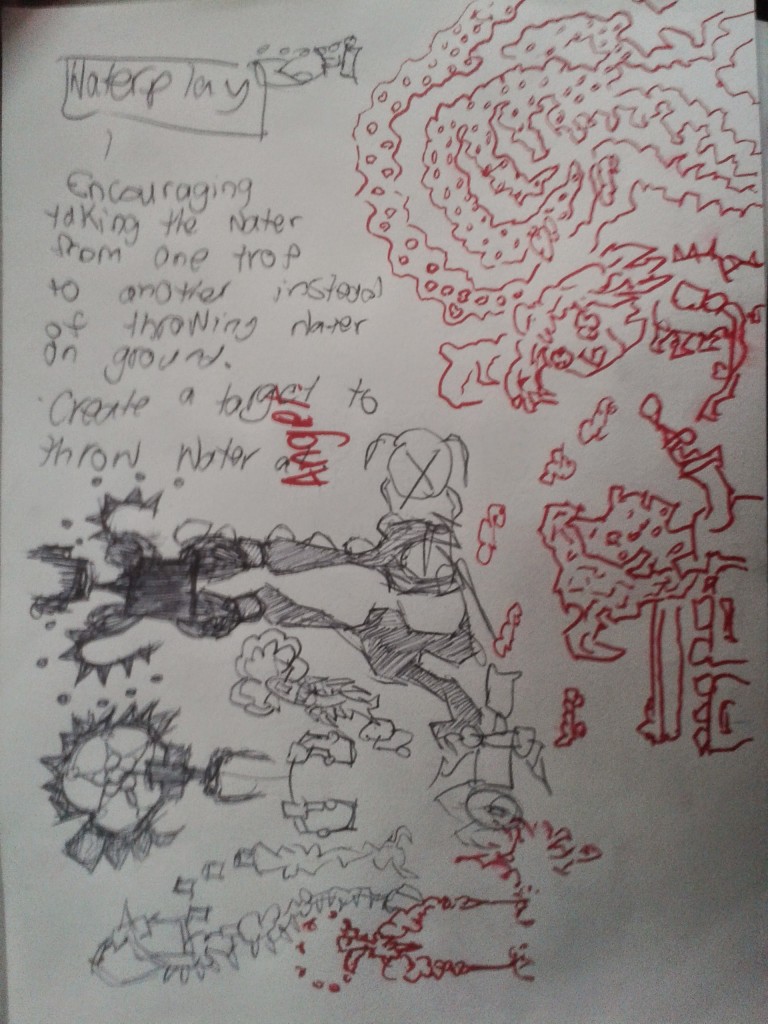 Waterplay
Encouraging
taking the water
from one trof
to another instead
of throwing water
on ground.
Create a target to
throw water a
Anger